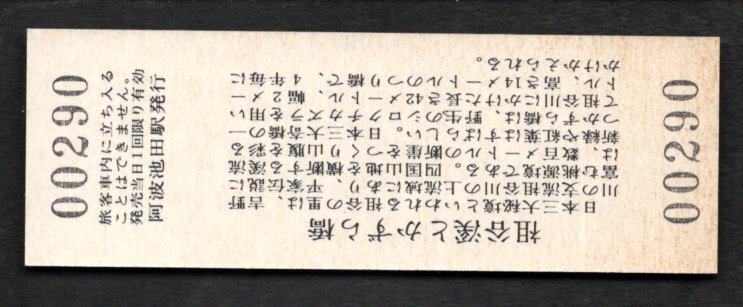 祖谷溪とかずら橋
日本三大秘境といわれる祖谷の里は、吉野
川の支流祖谷川の上流域にあり、平家伝説に
富む桃源境である。四国山地を横断する溪流
は、数百メートルの断崖をつくり山腹を彩る
新緑や紅葉はすばらしい。日本三大奇橋の一
つかずら橋は、野生のシロクチカズラを用い
て祖谷川にかけた長さ42メートル、幅2メー
トル、高さ14メートルのつり橋で、4年毎に
かけかえられる。
00290
旅客車内に立ち入る
ことはできません。
発売当日1回限り有効
阿波池田駅発行
00290